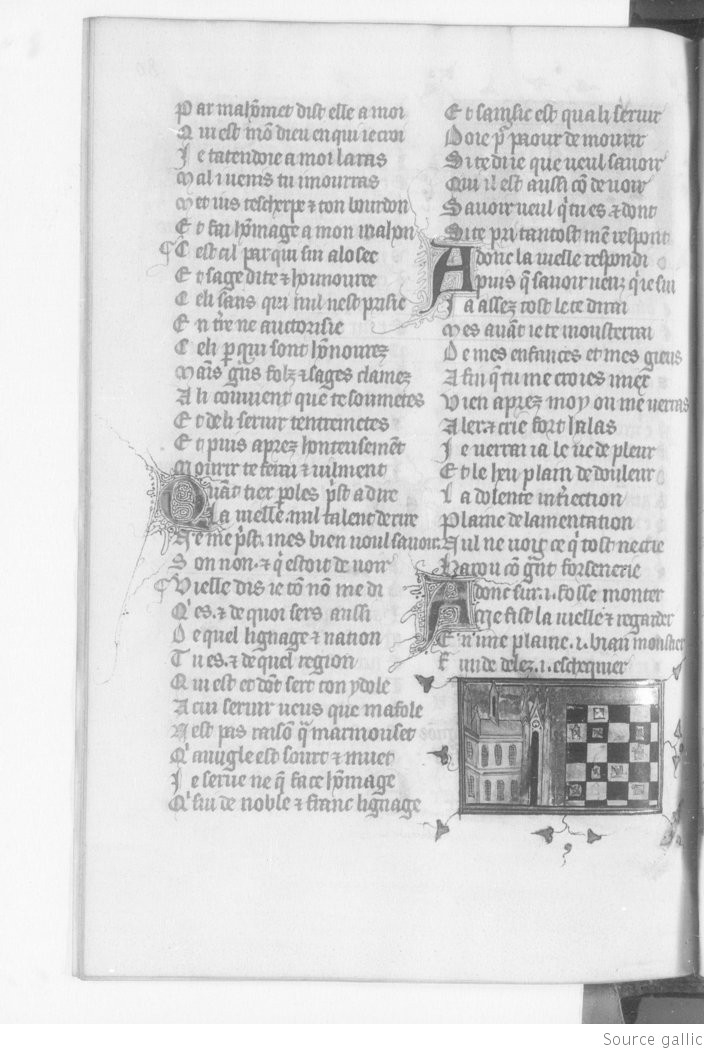 Par mahõmet dist elle a moi
Qui est mõ dieu en qui ie croi
Je tatendoie a moi laras
Mal i venis tu i mourras
Met ius tescherpe & ton bourdon
Et fai hõmage a mon mahon
Cest cil par qui sui alosee
Et sage dite & hõnnouree
Celi sans qui nul nest prisie
En tr̃e ne auctorisie
Celi p qui sont hõnourez
Mains grãs folz & sages clamez
A li conuient que te soumetes
Et de li seruir tentremetes
Et puis aprez honteusemẽt
Mourir te ferai & vilment
Quãt tiex paroles prist a dire
La vielle nul talent de rire
Ne me prist mes bien voul sauoir
Son non & q̃ estoit de voir
Vielle dis ie tõ nõ me di
Q̃ es & de quoi sers aussi
De quel lignage & nation
Tu es & de quel region
Qui est et dõt sert ton ydole
A cui seruir veus que mafole
Nest pas raisõ q̃ marmouset
Q̃ auugle est sourt & muet
Je serue ne q̃ face hõmage
Q̃ sui de noble & franc lignage
Et sainsic est qua li seruir
Doie pr̃ paour de mourir
Si te di ie que veul sauoir
Qui il est aussi cõ de voir
Sauoir veul q̃ tu es & dont
Si te pri tantost mẽ respont
Adonc la vielle respondi
Puis q̃ sauoir veuz q̃ ie sui
Ja assez tost le te dirai
Mes auãt ie te monsterrai
De mes enfances et mes gieus
Afin q̃ tu me croies miex
Vien aprez moy ou me verras
Aler & crie fort halas
Je verrai ia le iie de pleur
Et le lieu plain de douleur
La dolente intrection
Plaine de lamentation
Nul ne voit ce q̃ tost ne crie
Harou cõ grãt forsenerie
Adonc sur .i. fosse monter
Me fist la vielle & regarder
En vne plaine .i. biau monstier
Et vi de delez .i. eschequier
Source gallic